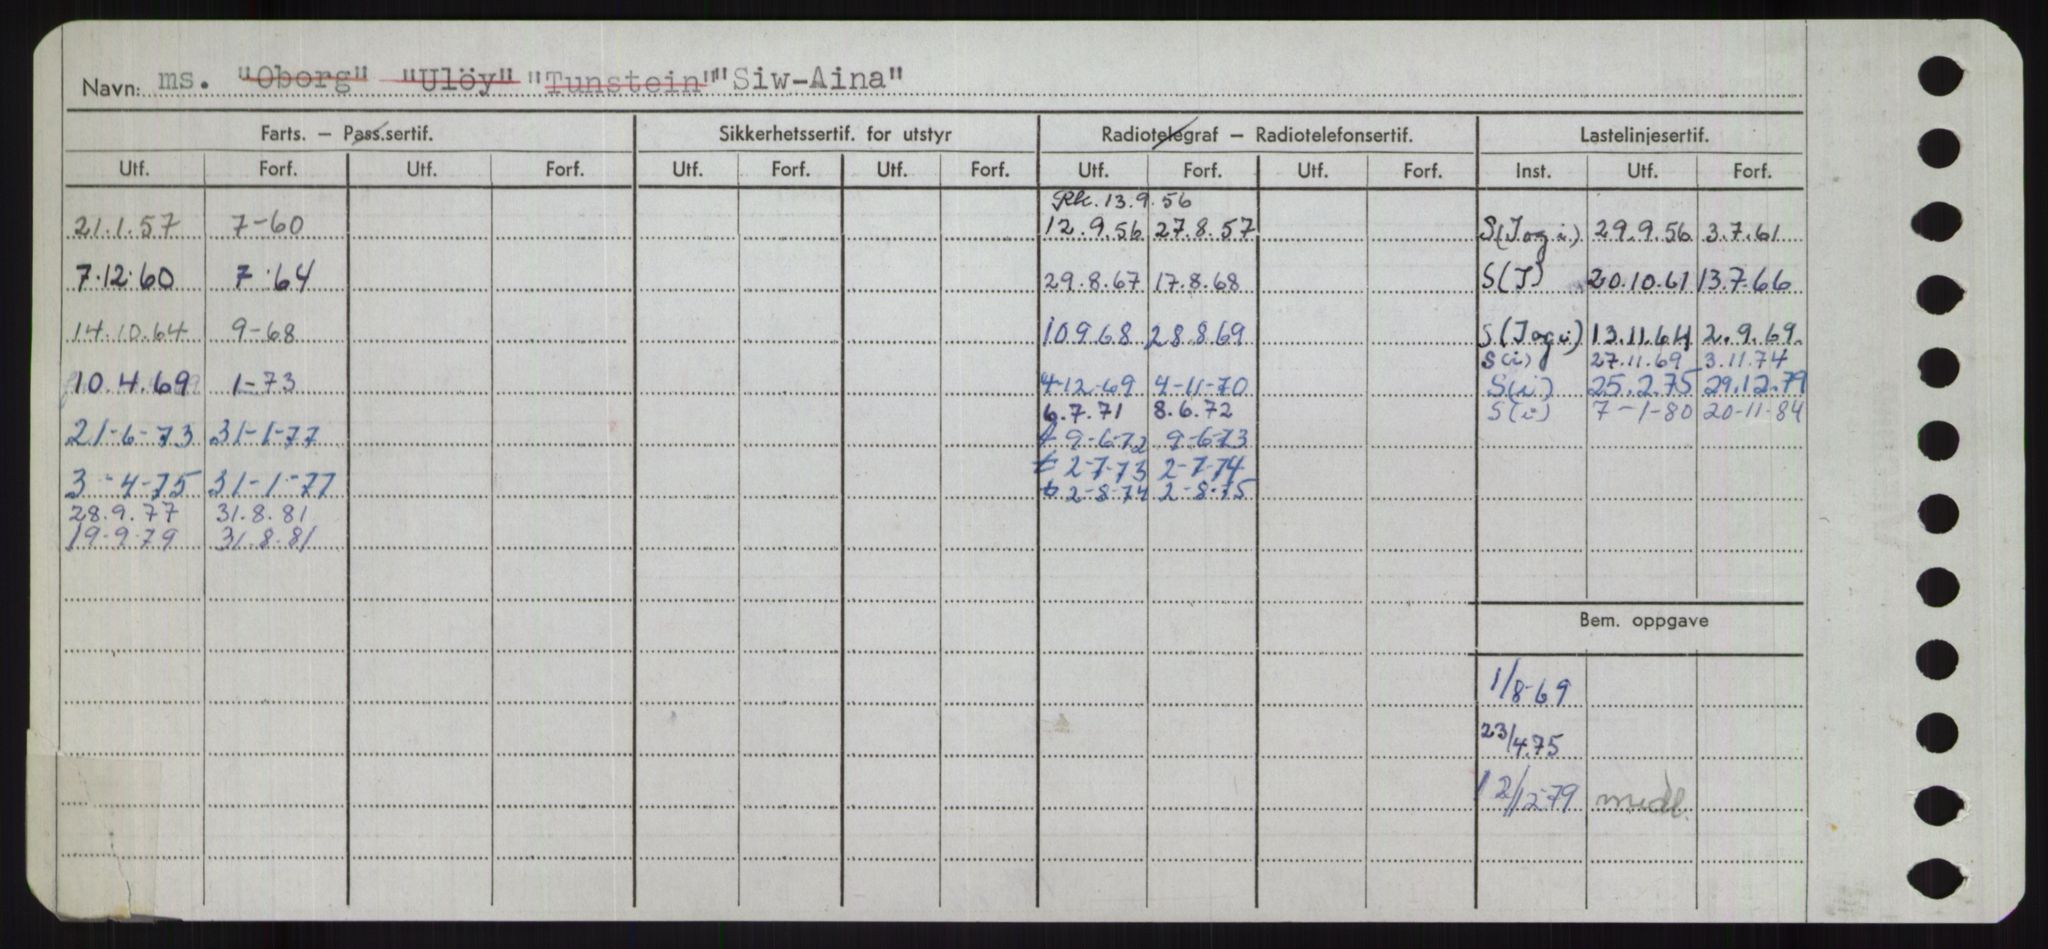 Navn: ms. "Oborg" "Ulöy" "Tunstein" "Siw-Aina"
Farts. — Pass.sertif. Sikkerhetssertif. for utstyr Radiotelegraf — Radiotelefonsertif. Lastelinjesertif.
Utf. Forf. Utf. Forf. Utf. Forf. Utf. Forf. Utf. Forf. Utf. Forf. Inst. Utf. Forf.
Rk. 13.9.56
21.1.57 7-60 12.9.56 27.8.57 S(I og i) 29.9.56 3.7.61
7.12.60 7.64 29.8.67 17.8.68 S(I) 20.10.61 13.7.66
14.10.64 9-68 10.9.68 28.8.69 S(I og i) 13.11.64 2.9.69
S(i) 27.11.69 3.11.74
10.4.69 1-73 4-12-69 4-11-70 S(i) 25.2.75 29.12.79
6.7.71 8.6.72 S(i) 7-1-80 20-11-84
21-6-73 31-1-77 t 9-6-72 9-6-73
t 2-7-73 2-7-74
3-4-75 31-1-77 t 2-8-74 2-8-75
28.9.77 31.8.81
19-9-79 31.8.81
Bem. oppgave
1/8-69
23/4.75
12/12-79 medl.